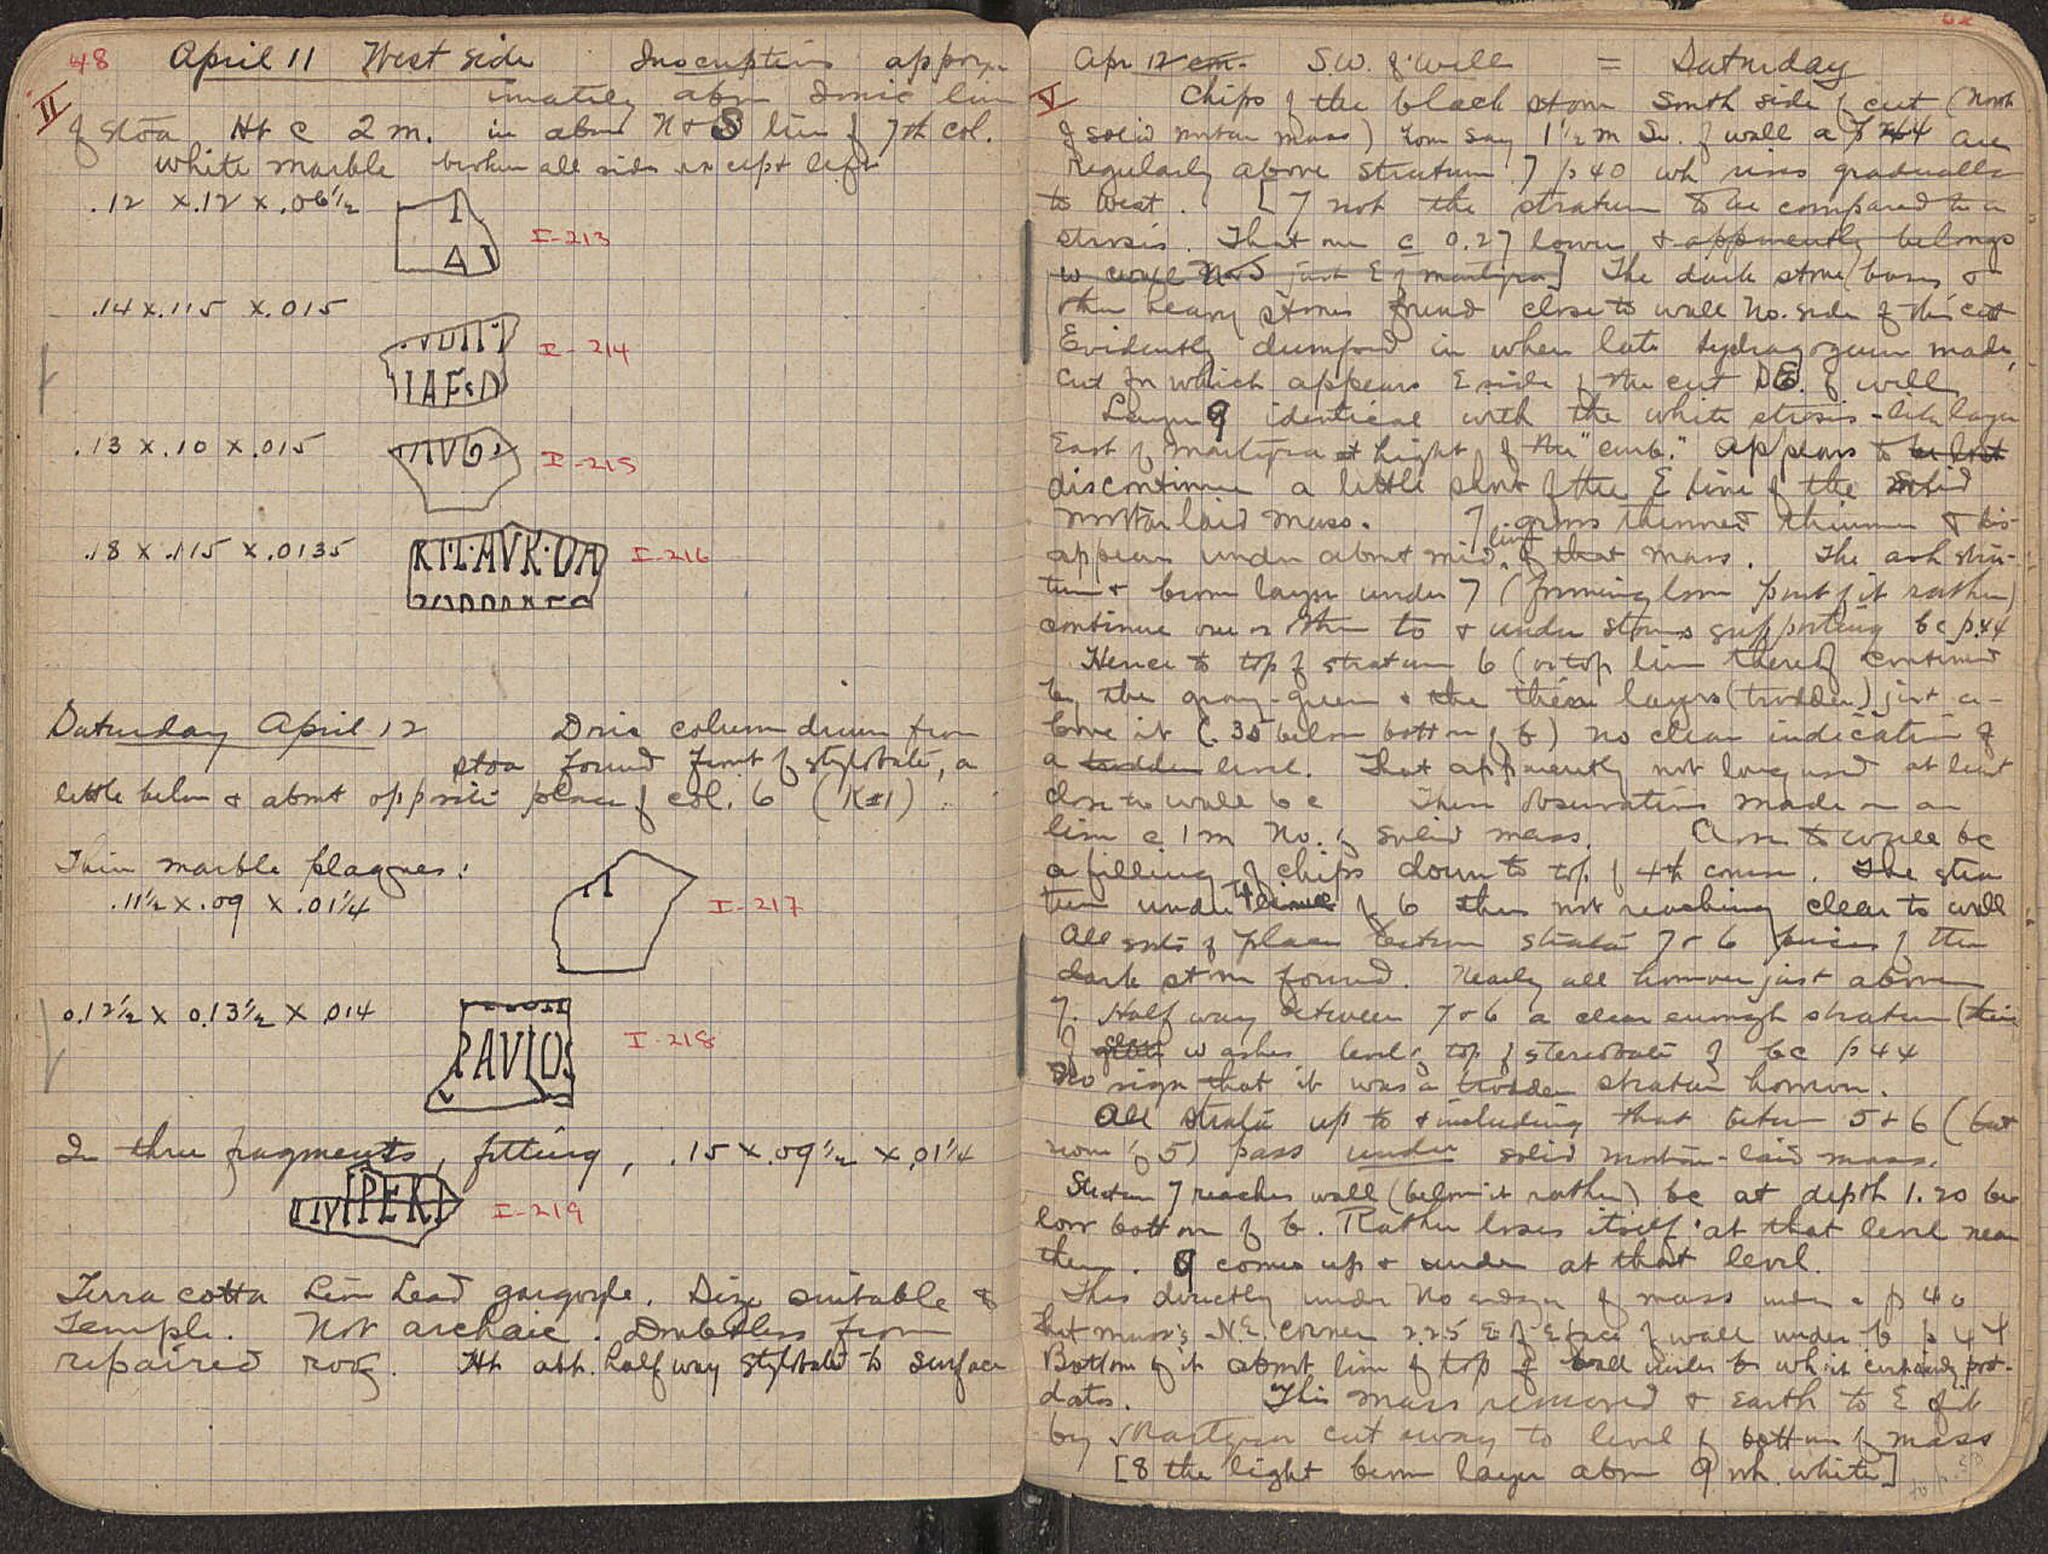 48 April 11 West side Inscriptions approx
imately above Ionic line
II
of stoa Ht c 2 m. in about N & S line of 7th col.
white marble broken all sides except left
.12 x .12 x .06½
I
A
I-213
.14 x .115 x .015
IAF&D
I-214
.13 x .10 x .015
I-215
.18 x .115 x .0135
I-216
Saturday April 12 Doric column drum from
stoa found front of stylobate, a
little below & about opposite place of col. 6
Thin marble plaques:
.11½ x .09 x .01¼
I-217
0.12½ x 0.13½ x .014
PAVIOS
I-218
In three fragments, fitting, .15 x .09½ x .01¼
I-219
Terra cotta lion head gargoyle. Size suitable to
temple. Not archaic. Doubtless from
repaired roof. Ht abt. half way stylobate to surface
Apr 12 S.W. of well = Saturday
V
Chips of the black stone South side of cut (North
of solid mortar mass) from say 1½ m of wall a p 44 are
regularly above stratum 7 p 40 wh rises gradually
to west. [7 not the stratum to be compared to a
strosis. That one c 0.27 lower & apparently belongs
w wall N & S just E of martyra] The dark stone bases &
other heavy stones found close to wall No. side of this cut
Evidently dumped in when late hydragogeum made,
cut for which appears E side of the cut of well
Layer 9 identical with the white strosis-like layer
East of martyra at height of the "curb." Appears to be lost
discontinue a little short of the E line of the solid
mortar laid mass. 7 grows thinner & dis-
appears under about mid line of that mass. The ash stra-
tum & brown layer under 7 (forming lower part of it rather)
continue one or other to & under stones supporting bc p.44
Hence to top of stratum 6 (or top line thereof continued
by the gray-green & the layers (trodden) just a-
bove it (.35 below bottom of b) no clear indication of
a trodden level. That apparently not long used at least
close to wall bc These observations made on a
line c 1 m No. of solid mass. Close to wall bc
a filling of chips down to top of 4th course. The stra
tum under of 6 thus not reaching clear to wall
All sorts of places between strata 7 & 6 pieces of the
dark stone found. Nearly all however just above
7. Half way between 7 & 6 a clear enough stratum (thin
of w ashes level of top of stereobate of bc p 44
No sign that it was a trodden stratum however.
All strata up to & including that between 5 & 6 (but
5) pass under solid mortar-laid mass.
Stratum 7 reaches wall (below it rather) bc at depth 1.20 be
low bottom of b. Rather loses itself at that level near
them. 9 comes up & under at that level.
This directly under No edge of mass under p 40
That mass's N.E. corner 2.25 E of E face of wall under b p 44
Bottom of it about line of top of wall under b wh it certainly post-
dates. This mass removed & earth to E of it
by Martyra cut away to level of bottom of mass
[8 the light brown layer above 9 wh. white]